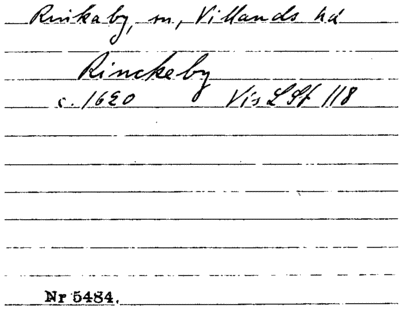 Rinkaby, sn, Villands hd
Rinckeby
c. 1620 Vis LSt 118
Nr 5484.